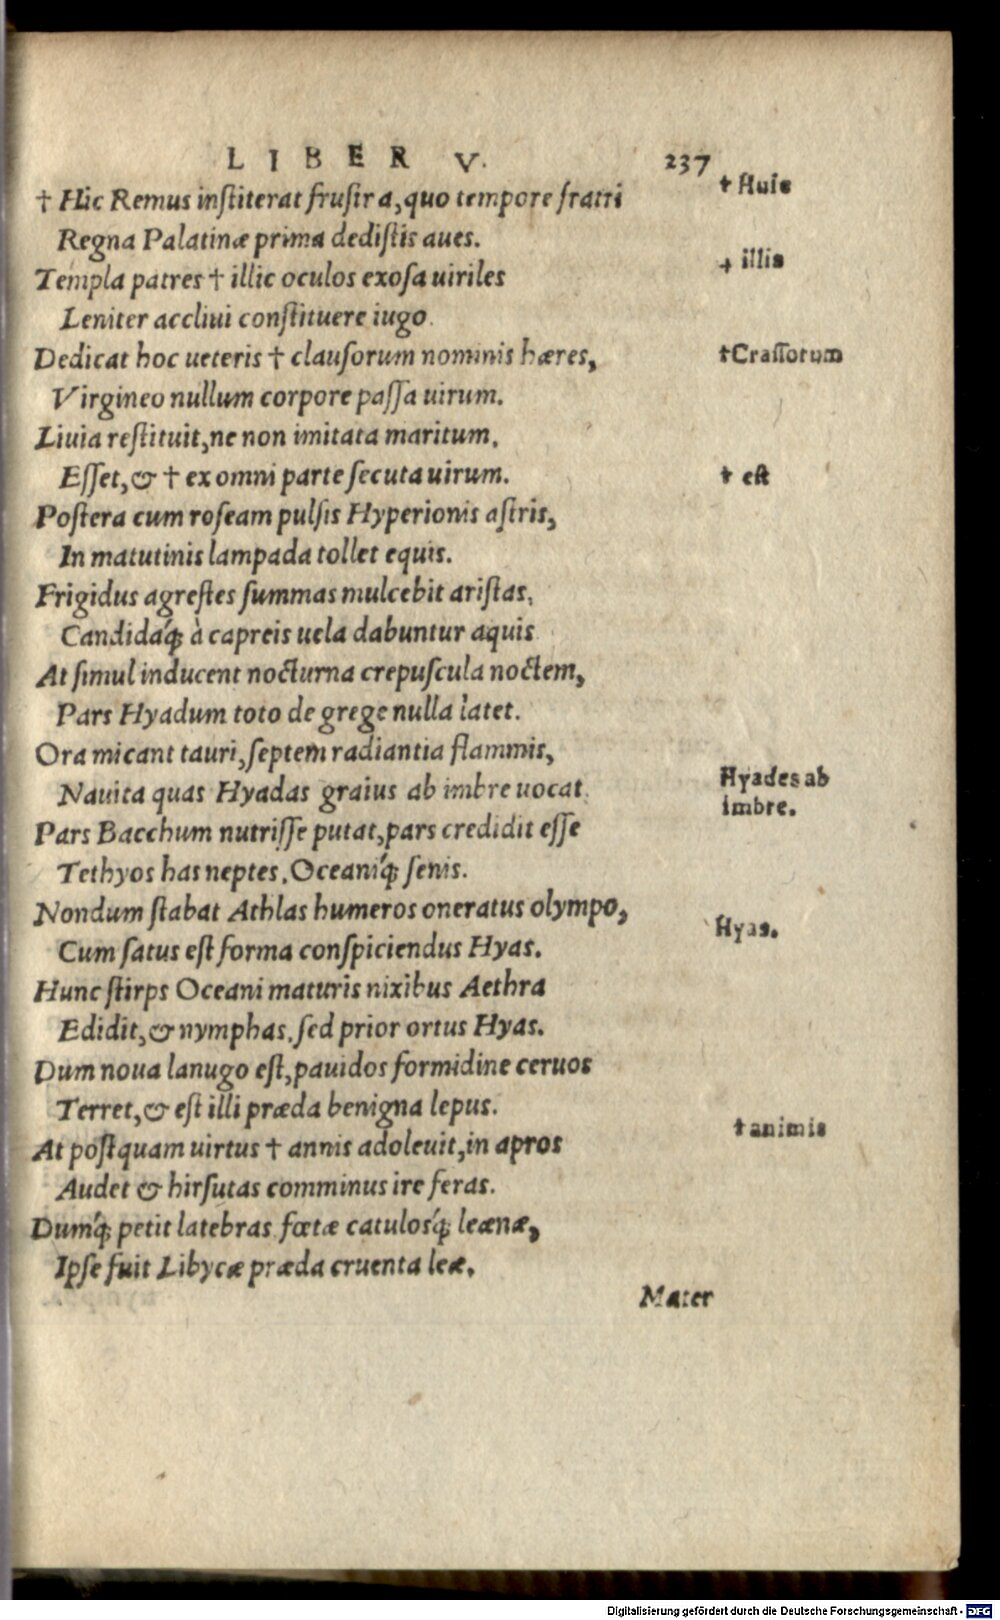 LIBER V. 237
† Hic Remus institerat frustra, quo tempore fratri
† Huic
Regna Palatinæ prima dedistis aues.
Templa patres † illic oculos exosa uiriles
† illis
Leniter accliui constituere iugo.
Dedicat hoc ueteris † clausorum nominis hæres,
† Crassorum
Virgineo nullum corpore passa uirum.
Liuia restituit, ne non imitata maritum.
Esset, & † ex omni parte secuta uirum.
† est
Postera cum roseam pulsis Hyperionis astris,
In matutinis lampada tollet equis.
Frigidus agrestes summas mulcebit aristas,
Candidaq́; à capreis uela dabuntur aquis
At simul inducent nocturna crepuscula noctem,
Pars Hyadum toto de grege nulla latet.
Ora micant tauri, septem radiantia flammis,
Nauita quas Hyadas graius ab imbre uocat.
Hyades ab
imbre.
Pars Bacchum nutrisse putat, pars credidit esse
Tethyos has neptes, Oceaniq́; senis.
Nondum stabat Athlas humeros oneratus olympo,
Hyas.
Cum satus est forma conspiciendus Hyas.
Hunc stirps Oceani maturis nixibus Aethra
Edidit, & nymphas, sed prior ortus Hyas.
Dum noua lanugo est, pauidos formidine ceruos
Terret, & est illi præda benigna lepus.
At postquam uirtus † annis adoleuit, in apros
† animis
Audet & hirsutas comminus ire feras.
Dumq́; petit latebras fœtæ catulosq́; leænæ,
Ipse fuit Libycæ præda cruenta leæ.
Mater
Digitalisierung gefördert durch die Deutsche Forschungsgemeinschaft - DFG